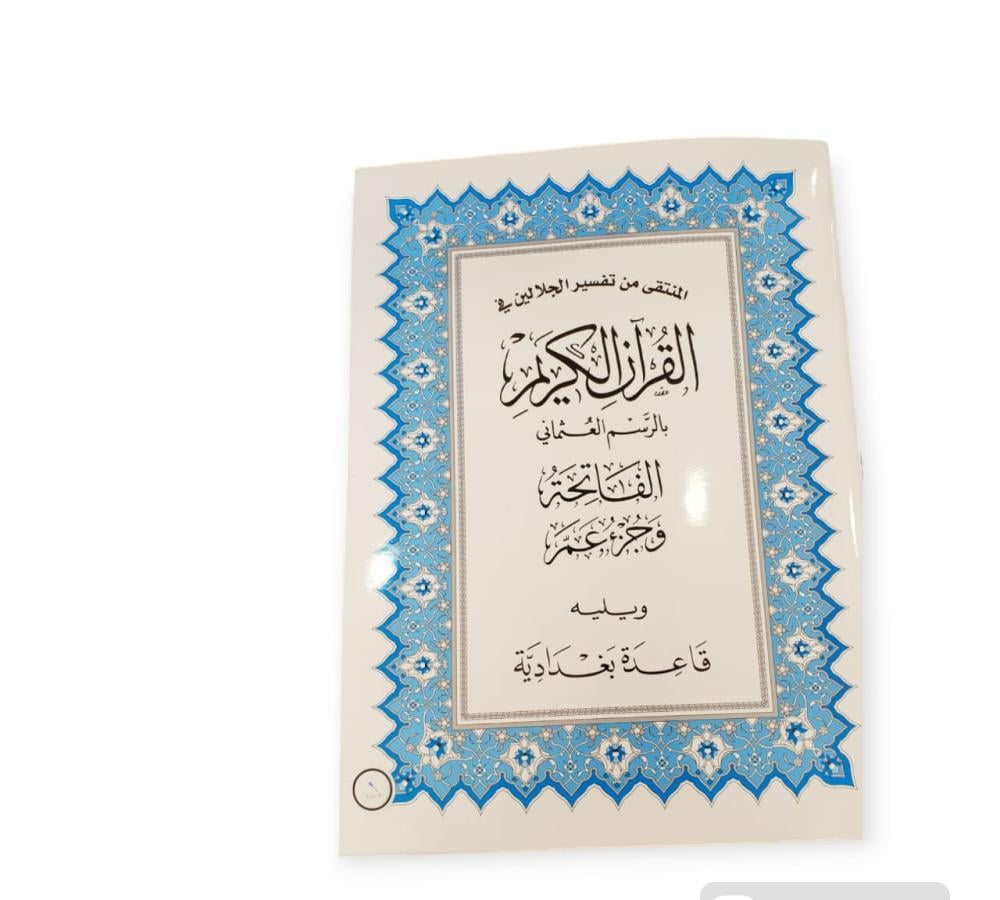 المنتقى من تفسير الجلالين في
القُرآن الكَرِيْمِ
بالرَّسْم العُثماني
الفَاتِحَةُ
وَجُزءُ عَمَّ
ويليه
قَاعِدَة بَغْدَادِيَّة